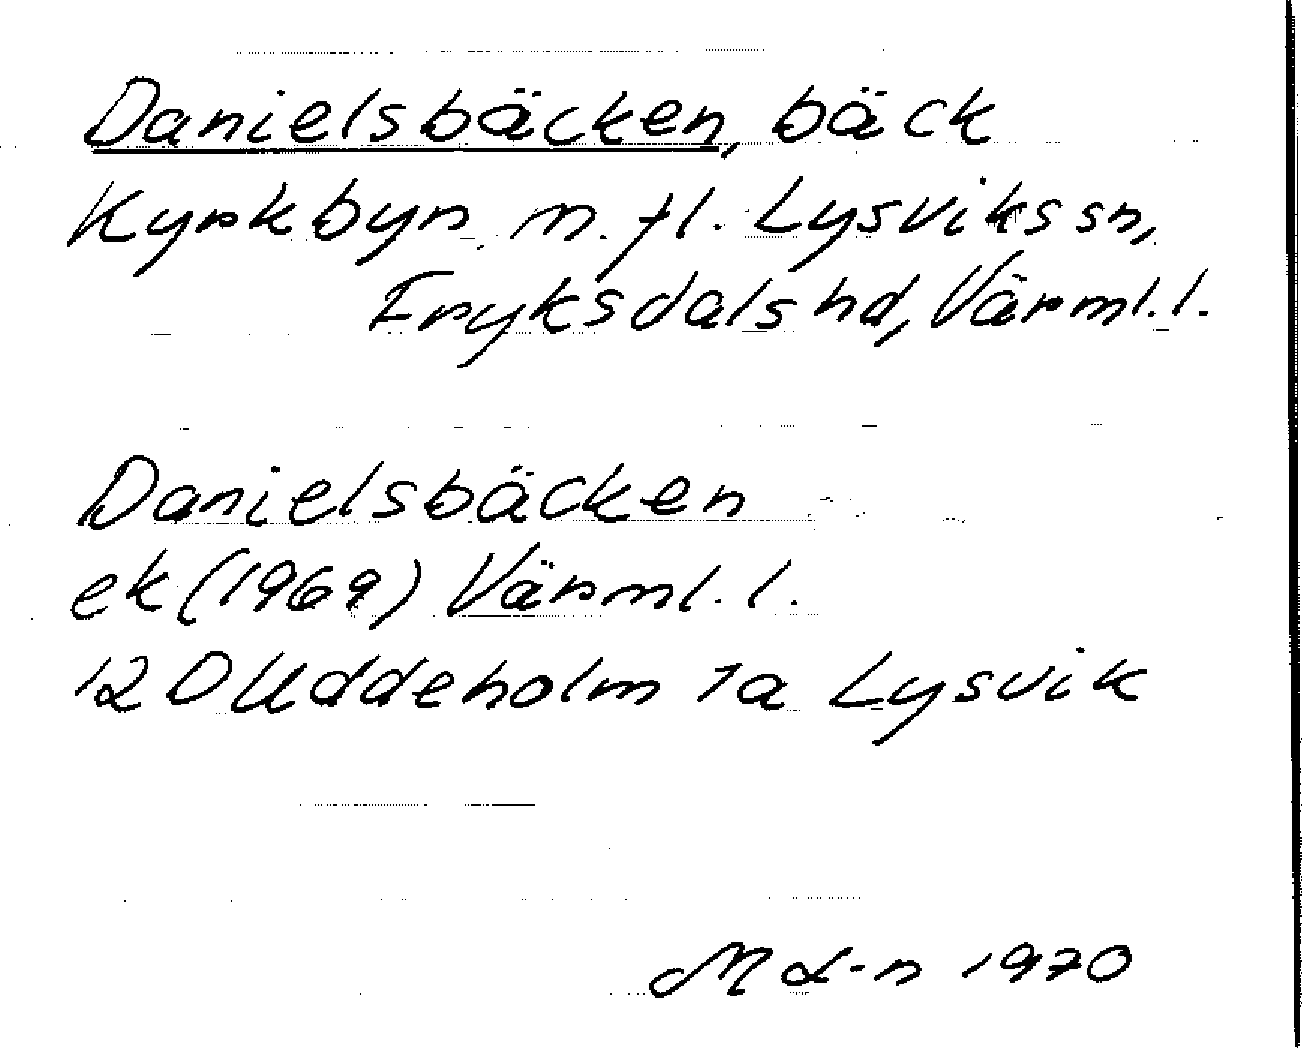 Danielsbäcken, bäck
Kyrkbyn m. fl. Lysviks sn,
Fryksdals hd, Värml. l.
Danielsbäcken
ek (1969) Värml. l.
12 D Uddeholm 1a Lysvik
1970